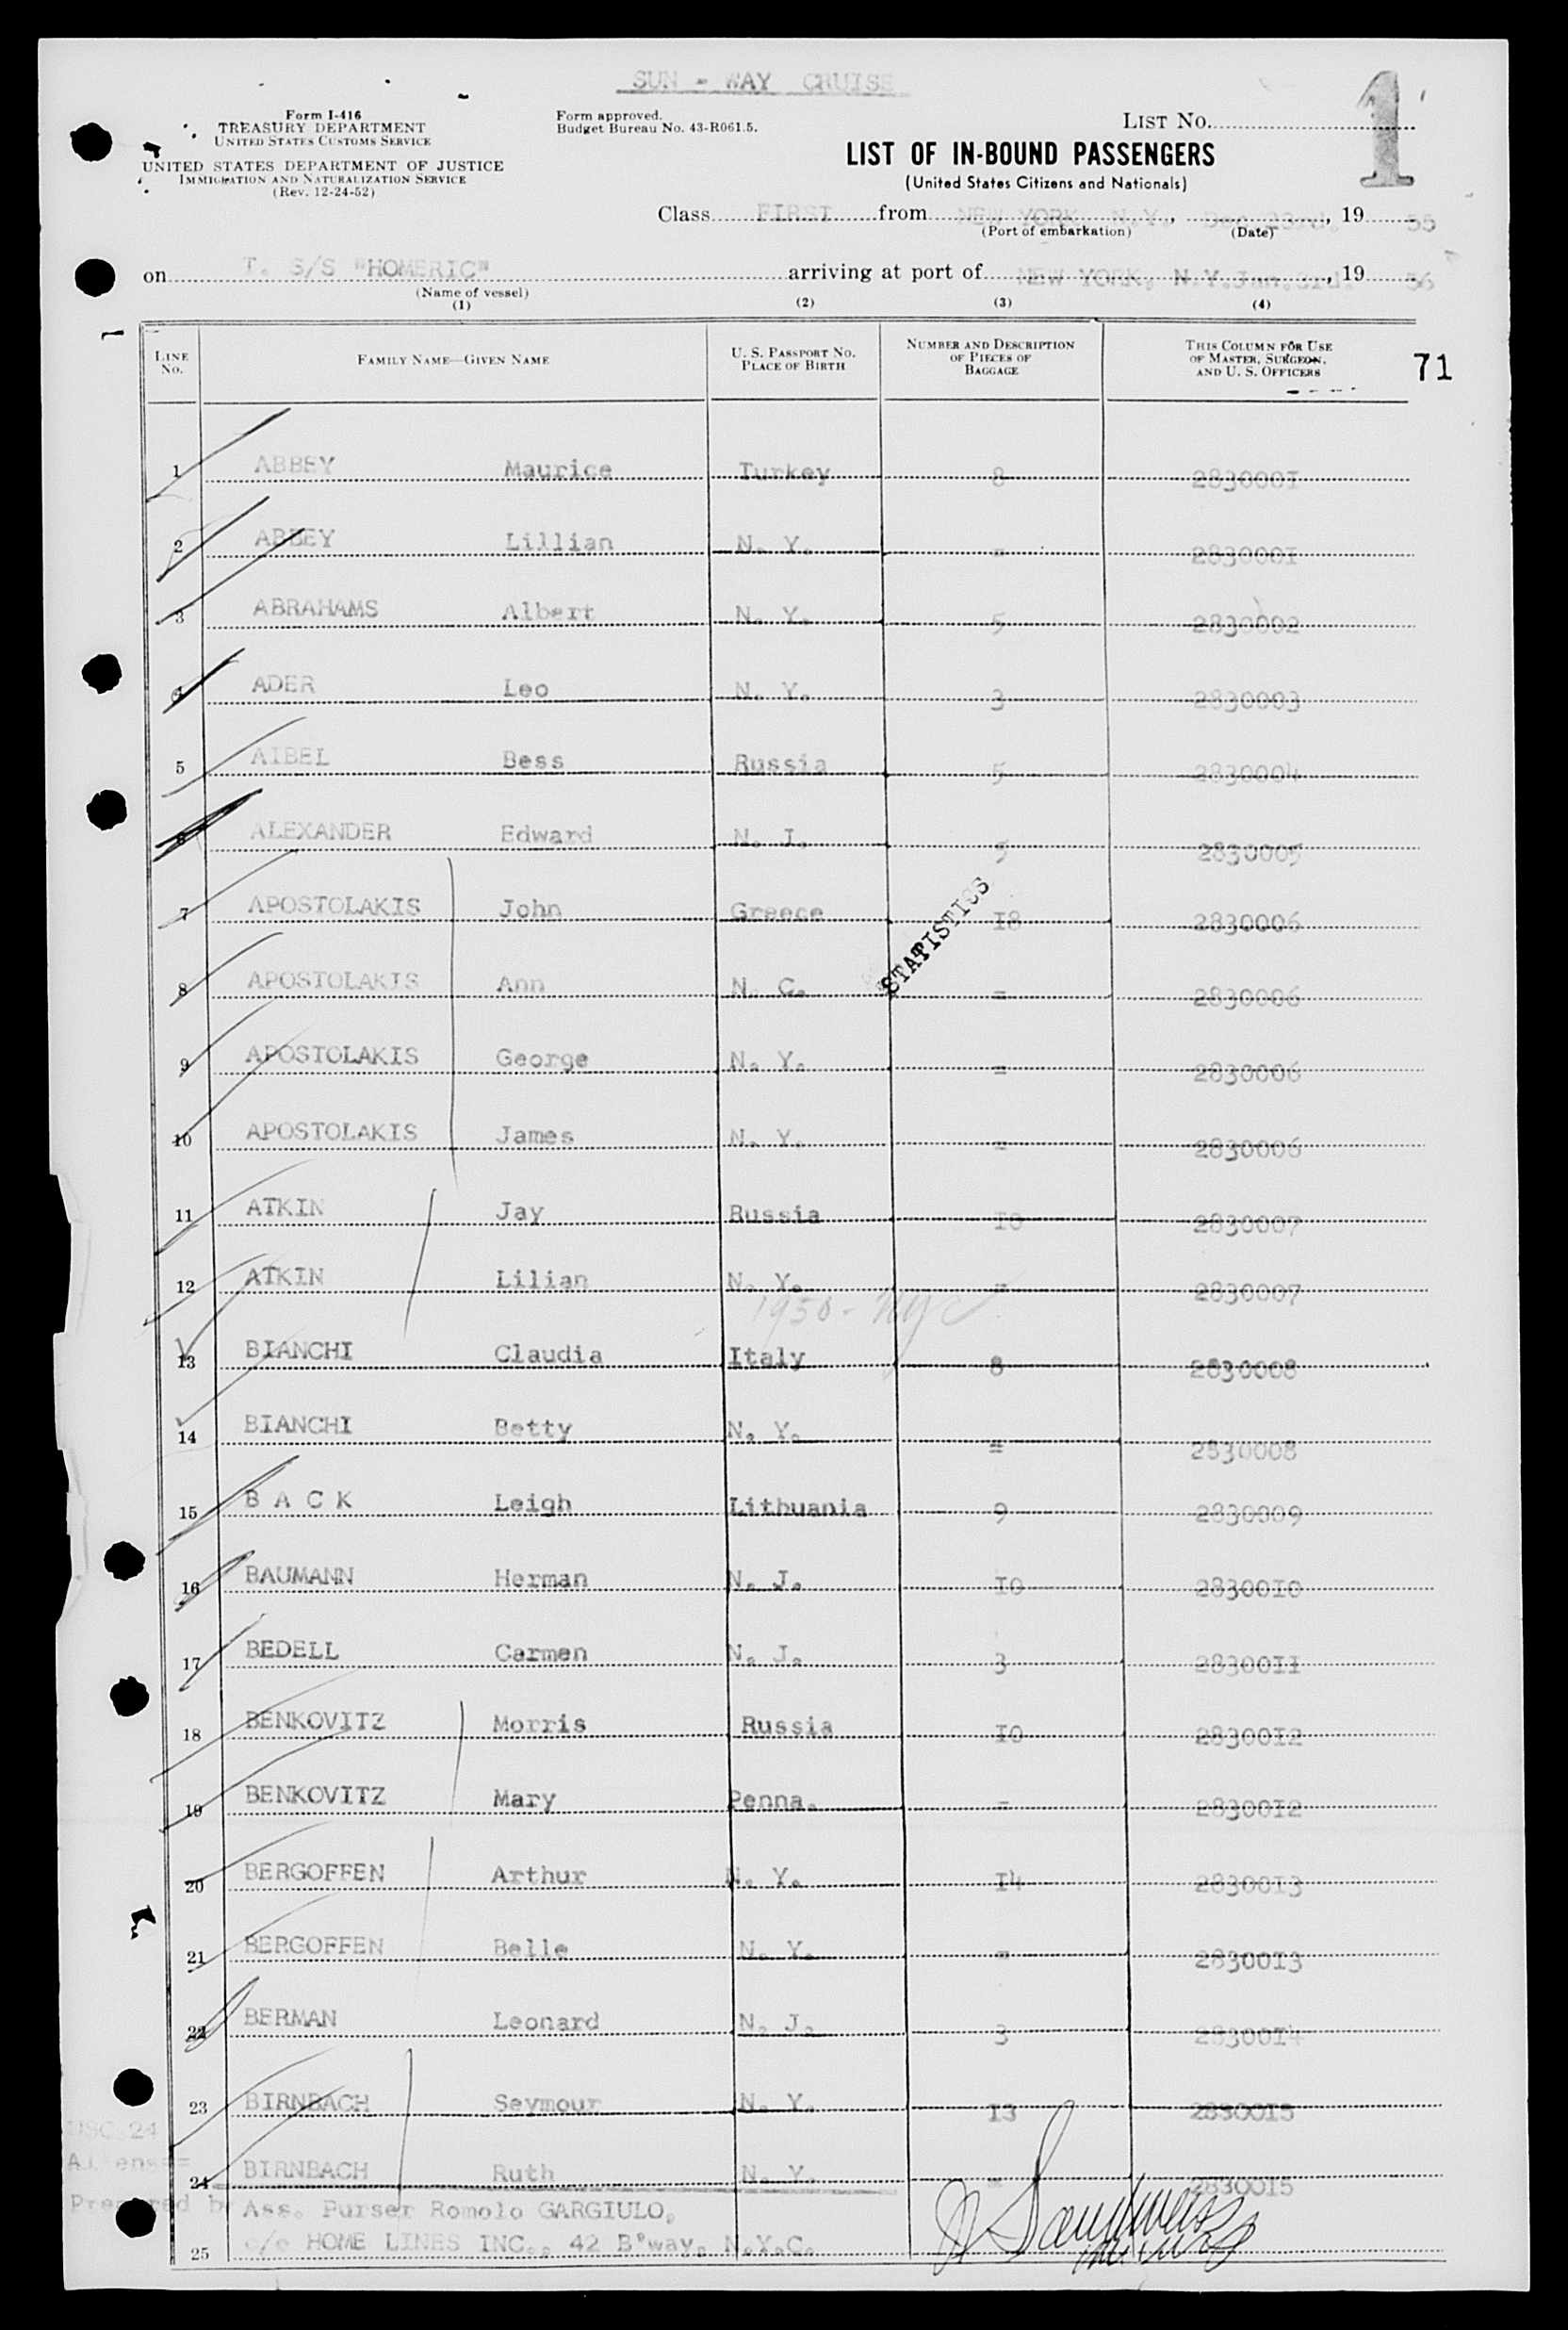 SUN - WAY CRUISE
Form I-416
TREASURY DEPARTMENT
UNITED STATES CUSTOMS SERVICE
UNITED STATES DEPARTMENT OF JUSTICE
IMMIGRATION AND NATURALIZATION SERVICE
(Rev. 12-24-52)
Form approved.
Budget Bureau No. 43-R061.5.
LIST NO. 1
LIST OF IN-BOUND PASSENGERS
(United States Citizens and Nationals)
Class FIRST from NEW YORK, N.Y., Dec. 23rd., 19 55
(Port of embarkation) (Date)
on T. S/S "HOMERIC" arriving at port of NEW YORK, N.Y. Jan. 3rd., 19 56
(Name of vessel)
(1) (2) (3) (4)
LINE NO. FAMILY NAME—GIVEN NAME U. S. PASSPORT NO. PLACE OF BIRTH NUMBER AND DESCRIPTION OF PIECES OF BAGGAGE THIS COLUMN FOR USE OF MASTER, SURGEON, AND U. S. OFFICERS
71
1 ABBEY Maurice Turkey 8 2830001
2 ABBEY Lillian N. Y. = 2830001
3 ABRAHAMS Albert N. Y. 5 2830002
4 ADER Leo N. Y. 3 2830003
5 AIBEL Bess Russia 5 2830004
6 ALEXANDER Edward N. J. 5 2830005
7 APOSTOLAKIS John Greece 18 2830006
STATISTICS
8 APOSTOLAKIS Ann N. C. = 2830006
9 APOSTOLAKIS George N. Y. = 2830006
10 APOSTOLAKIS James N. Y. = 2830006
11 ATKIN Jay Russia 10 2830007
12 ATKIN Lilian N. Y. = 2830007
1950 - NYC
13 BIANCHI Claudia Italy 8 2830008
14 BIANCHI Betty N. Y. = 2830008
15 B A C K Leigh Lithuania 9 2830009
16 BAUMANN Herman N. J. 10 2830010
17 BEDELL Carmen N. J. 3 2830011
18 BENKOVITZ Morris Russia 10 2830012
19 BENKOVITZ Mary Penna. = 2830012
20 BERGOFFEN Arthur N. Y. 14 2830013
21 BERGOFFEN Belle N. Y. = 2830013
22 BERMAN Leonard N. J. 3 2830014
23 BIRNBACH Seymour N. Y. 13 2830015
USC 24
Aliens =
24 BIRNBACH Ruth N. Y. = 2830015
Prepared by Ass. Purser Romolo GARGIULO,
25 c/o HOME LINES INC., 42 B'way, N.Y.C.